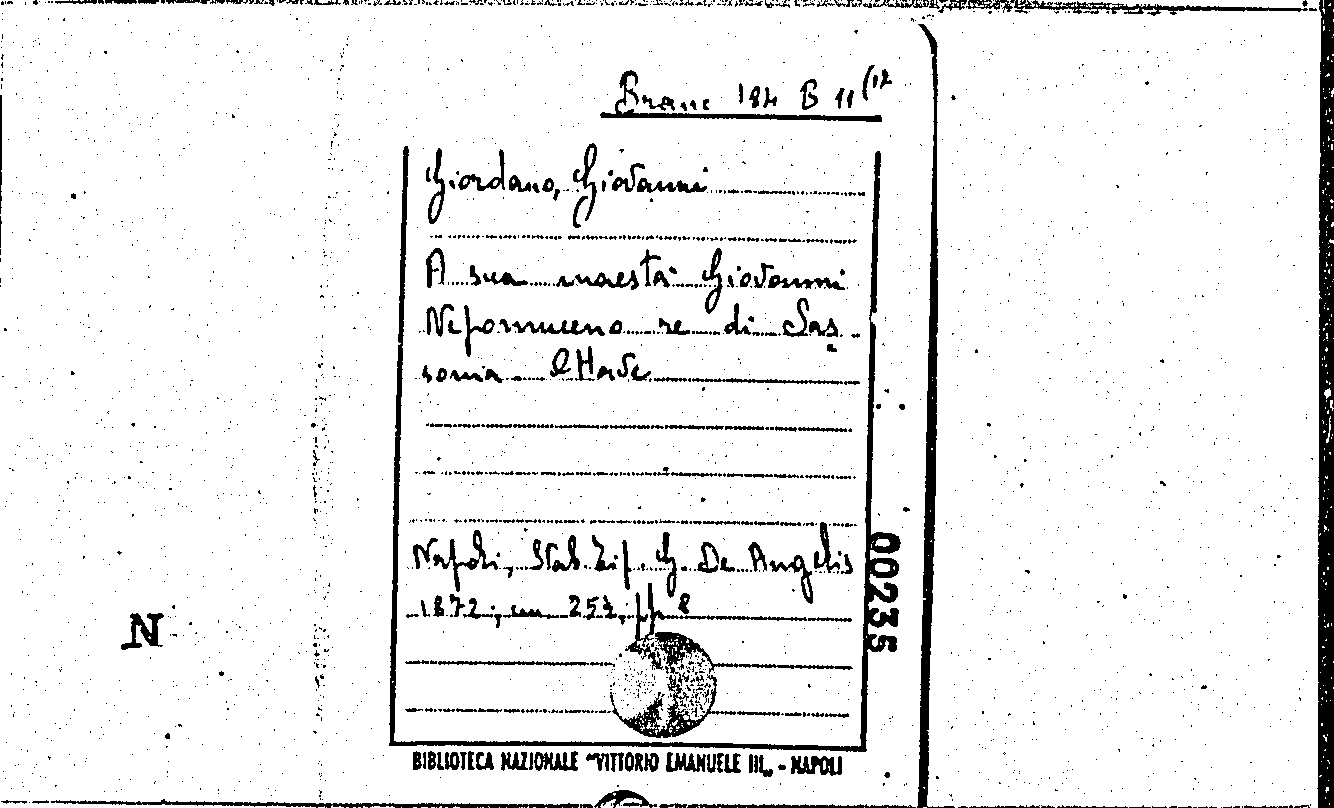 Branc 184 B 11(12
Giordano, Giovanni
A sua maestà Giovanni
Nepomuceno re di Sas-
sonia.
Napoli, Stab. Tip. G. De Angelis
1872; cm. 25½, pp. 8
00235
N
BIBLIOTECA NAZIONALE "VITTORIO EMANUELE III„ - NAPOLI